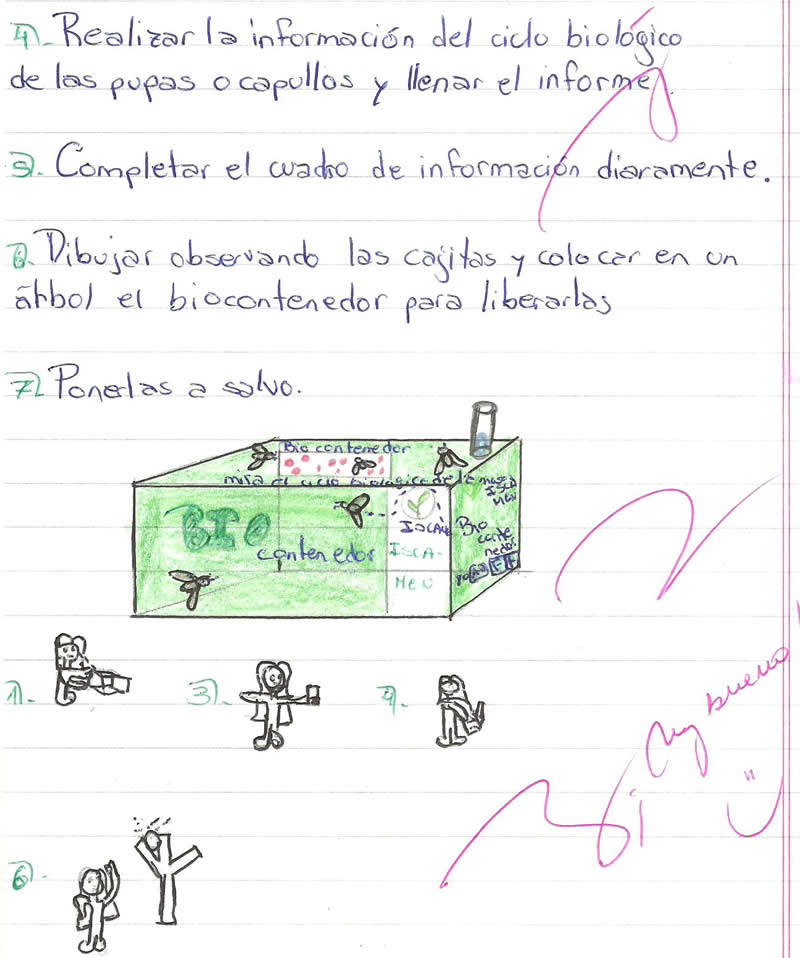 4). Realizar la información del ciclo biológico
de las pupas o capullos y llenar el informe.
5). Completar el cuadro de información diaramente.
6). Dibujar observando las cajitas y colocar en un
árbol el biocontenedor para liberarlas
7). Ponerlas a salvo.
Bio contenedor
mira el ciclo biológico de la
ISCA
MEN
BIO
contenedor
ISCAMEN
ISCA-
MEN
Bio
conte
nedor
1).
3).
4).
6).
Muy bueno!